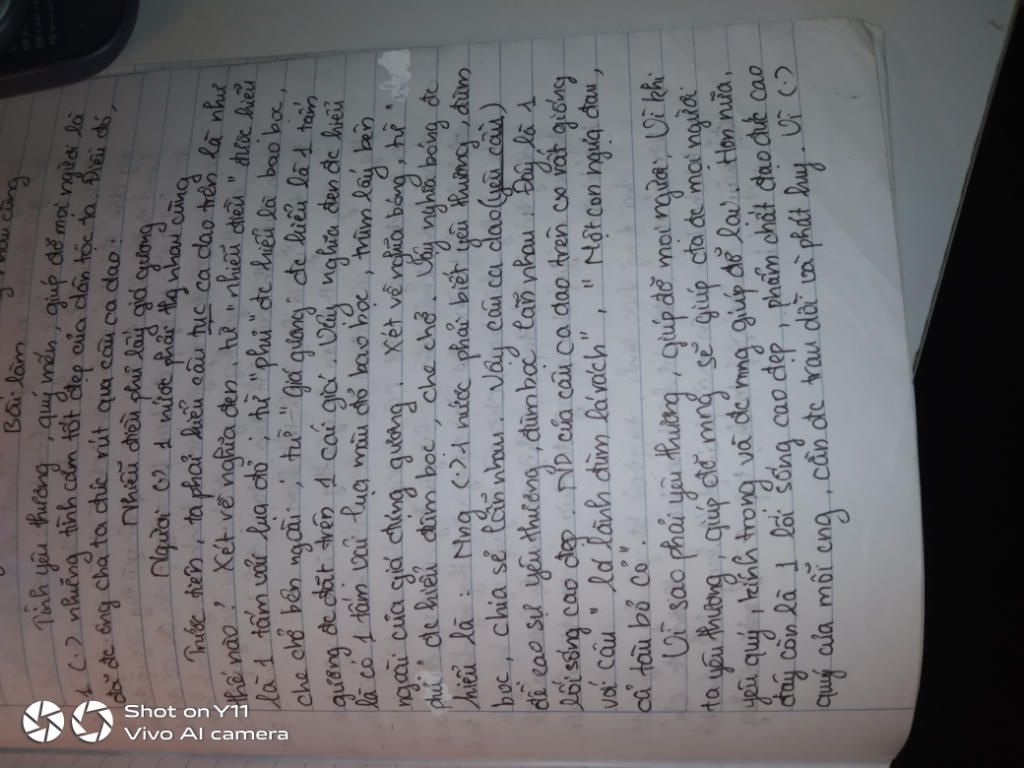 Bài làm
Tình yêu thương, quý mến, giúp đỡ mọi người là
1 (.) những tình cảm tốt đẹp của dân tộc ta. Điều đó,
đã đc ông cha ta đúc rút qua câu ca dao:
Nhiễu điều phủ lấy giá gương
Người (.) 1 nước phải thg nhau cùng
Trước tiên, ta phải hiểu câu tục ca dao trên là như
thế nào? Xét về nghĩa đen, từ "nhiễu điều" được hiểu
là 1 tấm vải lụa đỏ; từ "phủ" đc hiểu là bao bọc,
che chở bên ngoài; từ "giá gương" đc hiểu là 1 tấm
gương đc đặt trên 1 cái giá. Vậy nghĩa đen đc hiểu
là có 1 tấm vải lụa màu đỏ bao bọc, trùm lấy bên
ngoài của giá đựng gương. Xét về nghĩa bóng, từ "
phủ" đc hiểu đùm bọc, che chở. Vậy nghĩa bóng đc
hiểu là: Mng (.) 1 nước phải biết yêu thương, đùm
bọc, chia sẻ lẫn nhau. Vậy câu ca dao (yêu cầu)
đề cao sự yêu thương, đùm bọc lẫn nhau. Đây là 1
lối sống cao đẹp. ND của câu ca dao trên có nét giống
với câu "Lá lành đùm lá rách", "Một con ngựa đau,
cả tàu bỏ cỏ"
Vì sao phải yêu thương, giúp đỡ mọi người? Vì khi
ta yêu thương, giúp đỡ mình sẽ giúp đc mọi người
yêu quý, kính trọng và đc mng giúp đỡ lại. Hơn nữa,
đây còn là 1 lối sống cao đẹp, phẩm chất đạo đức cao
quý của mỗi cng, cần đc trau dồi và phát huy. Vì (.)
Shot on Y11
Vivo AI camera